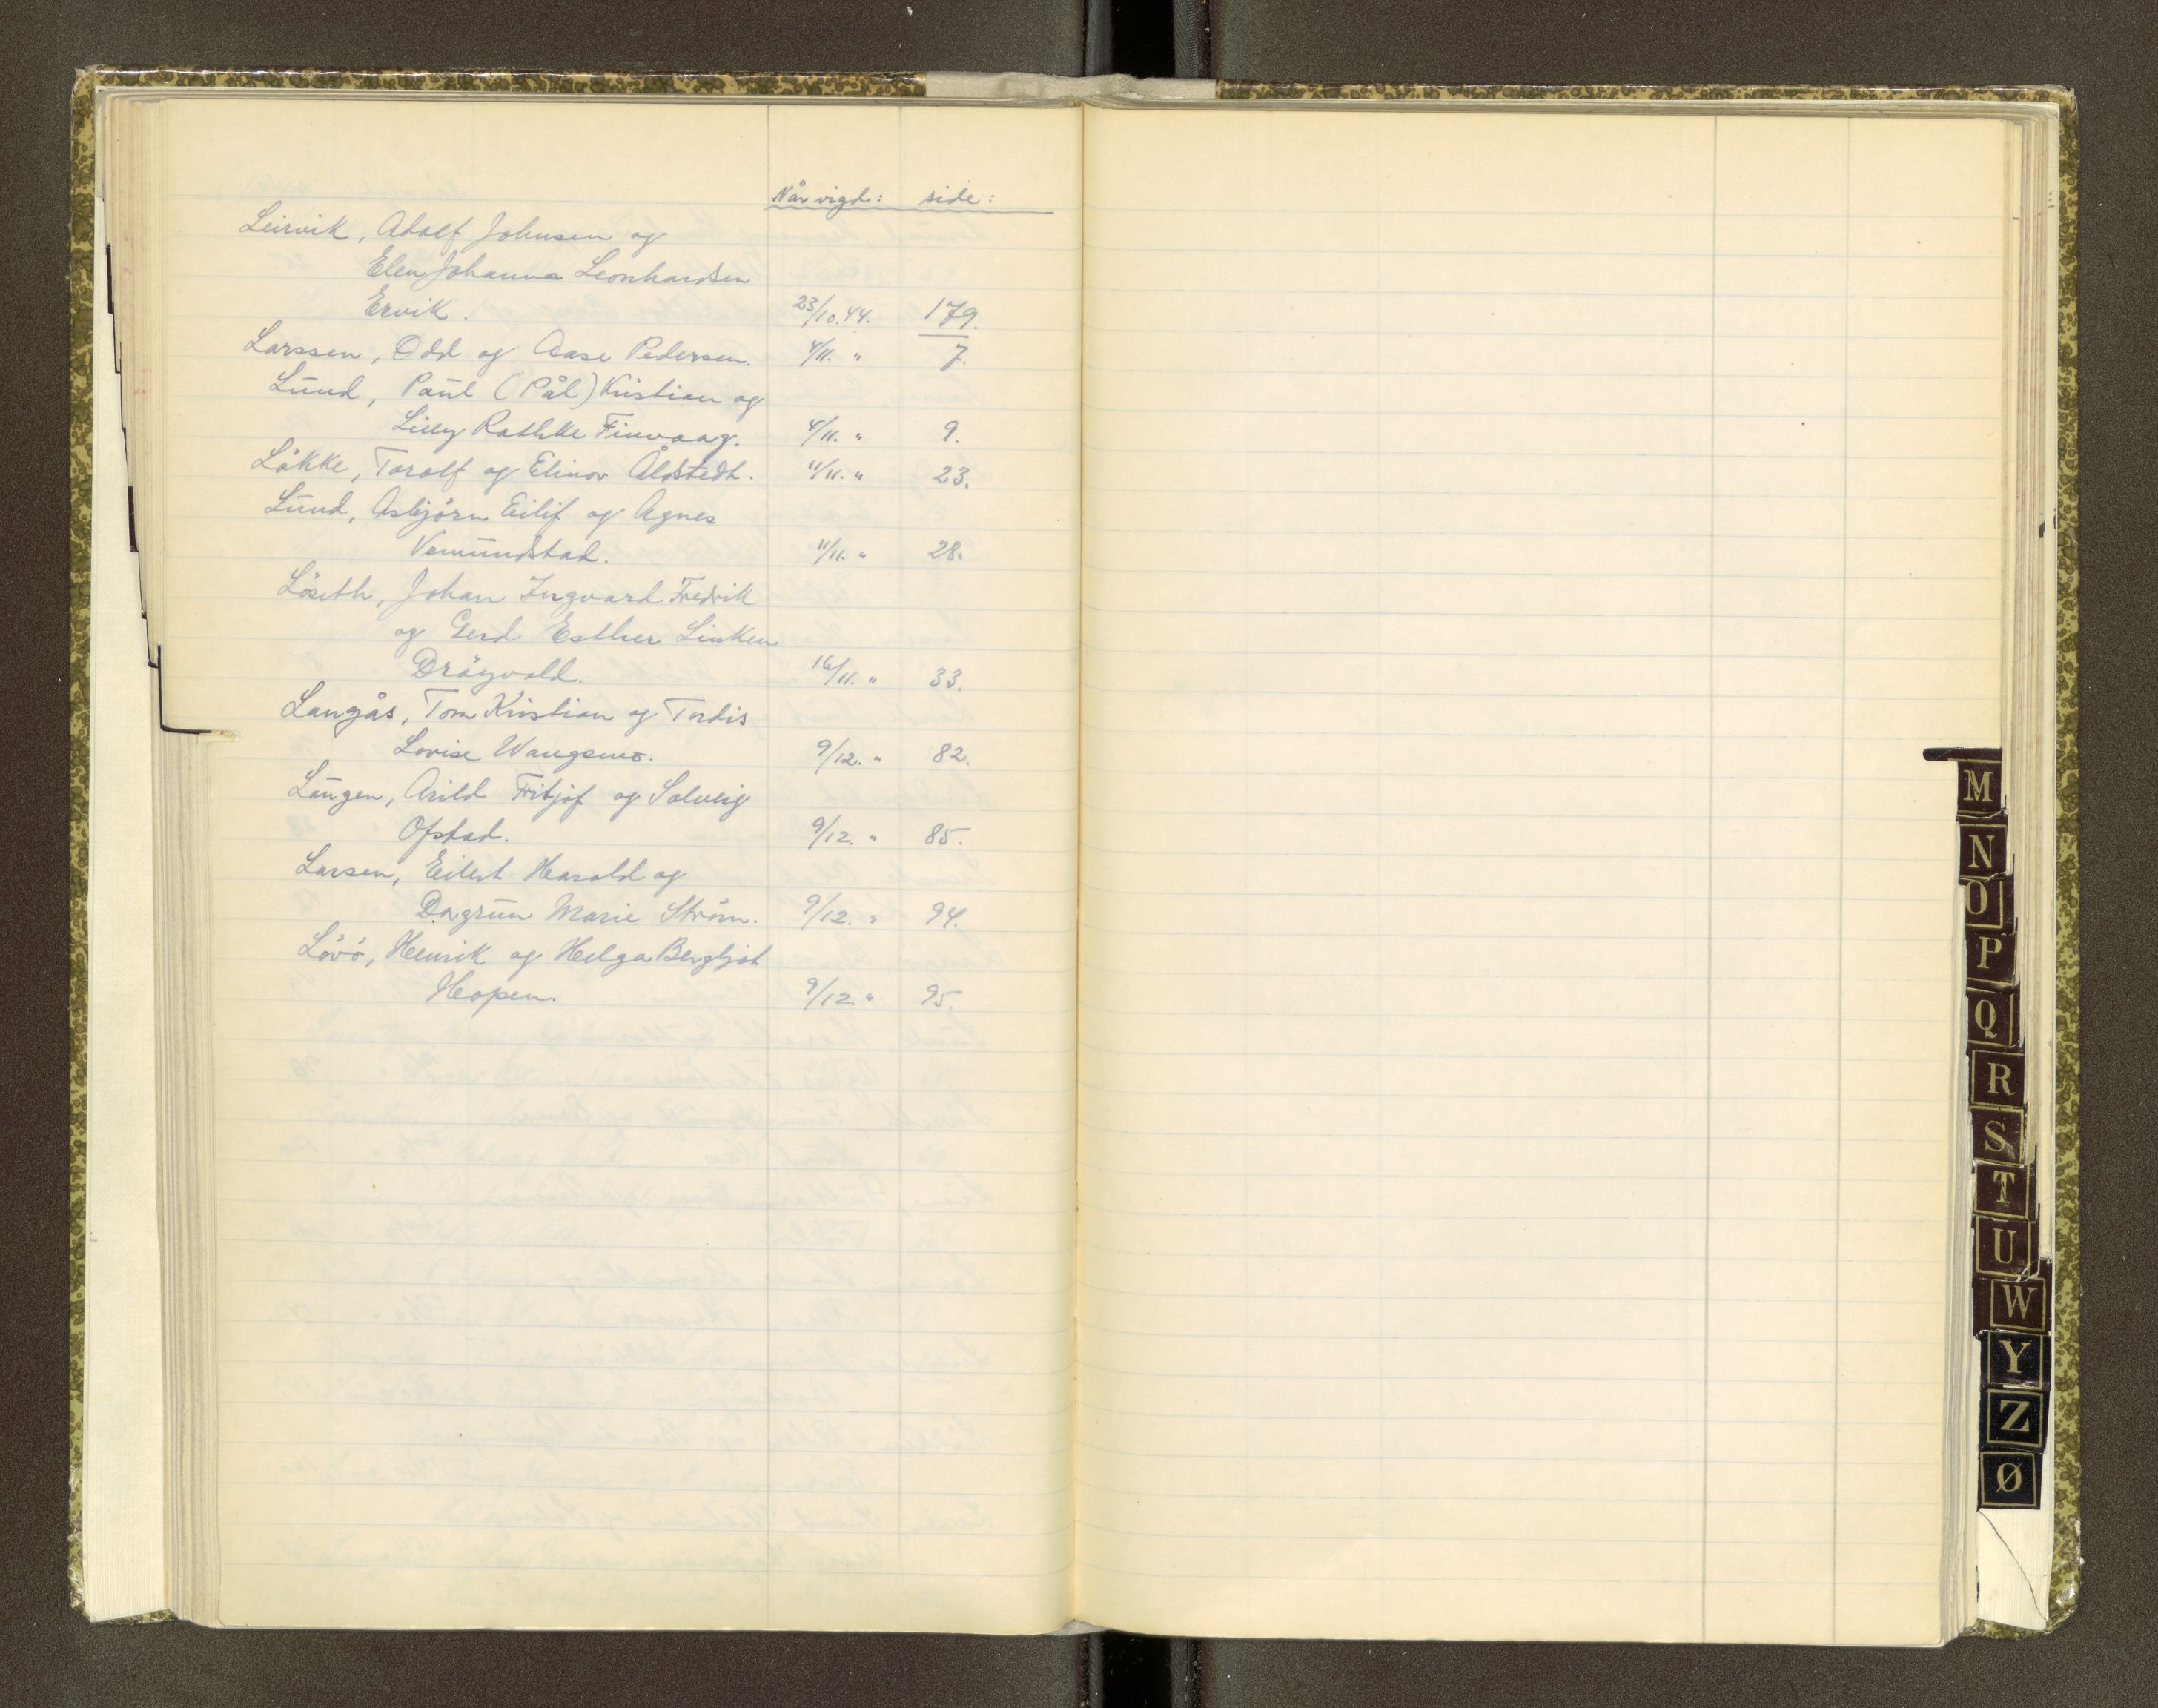 Når vigd: side:
Leirvik, Adolf Johnsen og
Elen Johanna Leonhardsen
Ervik. 23/10.44. 179.
Larssen, Odd og Aase Pedersen. 4/11. " 7.
Lund, Paul (Pål) Kristian og
Lilly Rathke Finvaag. 4/11. " 9.
Lökke, Toralf og Elinor Åldstedt. 11/11. " 23.
Lund, Asbjörn Eilif og Agnes
Vemundstad. 11/11. " 28.
Löseth, Johan Ingvard Fredrik
og Gerd Esther Linken
Drågvold. 16/11. " 33.
Langås, Tom Kristian og Tordis
Lovise Wangsmo. 9/12. " 82.
Langen, Arild Fritjof og Solveig
Opstad. 9/12. " 85.
Larsen, Eilert Harald og
Dagrun Marie Ström. 9/12. " 94.
Lövö, Henrik og Helga Bergljot
Hopen. 9/12. " 95.
M
N
O
P
Q
R
S
T
U
W
Y
Z
Ø